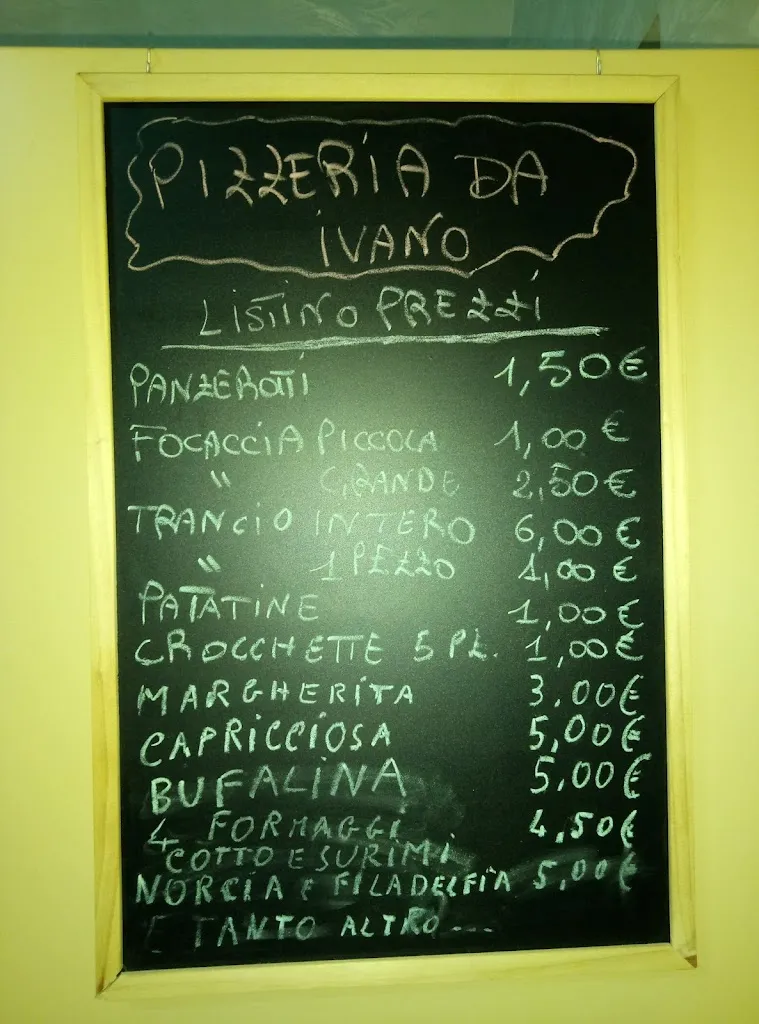 PIZZERIA DA
IVANO
LISTINO PREZZI
PANZEROTTI 1,50 €
FOCACCIA PICCOLA 1,00 €
" GRANDE 2,50 €
TRANCIO INTERO 6,00 €
" 1 PEZZO 1,00 €
PATATINE 1,00 €
CROCCHETTE 5 PZ. 1,00 €
MARGHERITA 3.00 €
CAPRICCIOSA 5,00 €
BUFALINA 5,00 €
4 FORMAGGI 4,50 €
COTTO E SURIMI
NORCIA E FILADELFIA 5,00 €
E TANTO ALTRO...